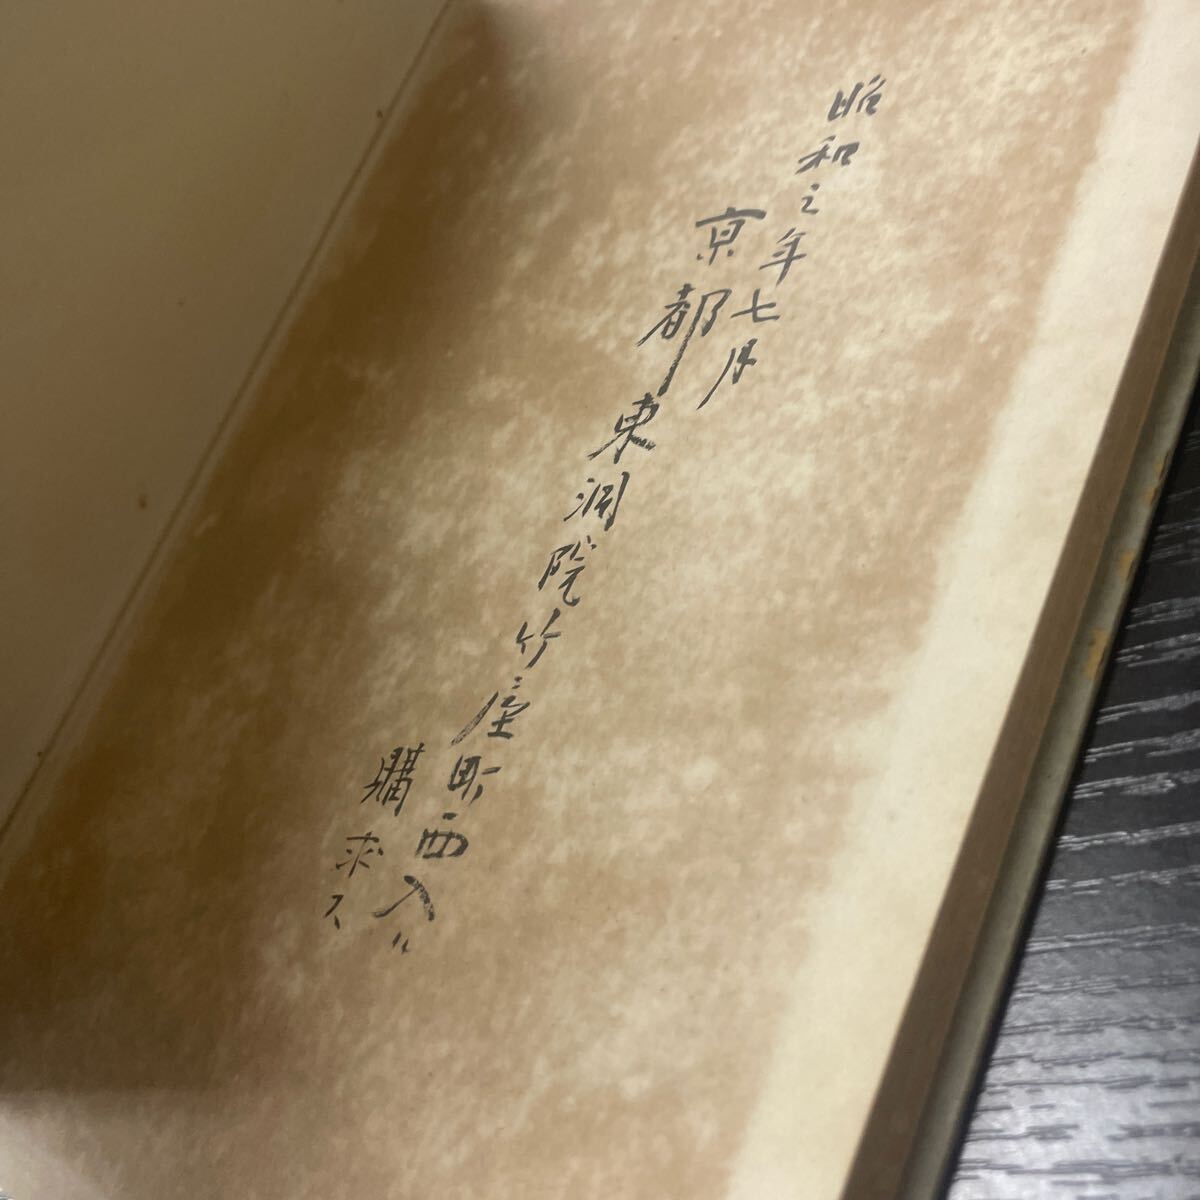 昭和三年七月
京都東洞院竹屋町西入ル
購求ス